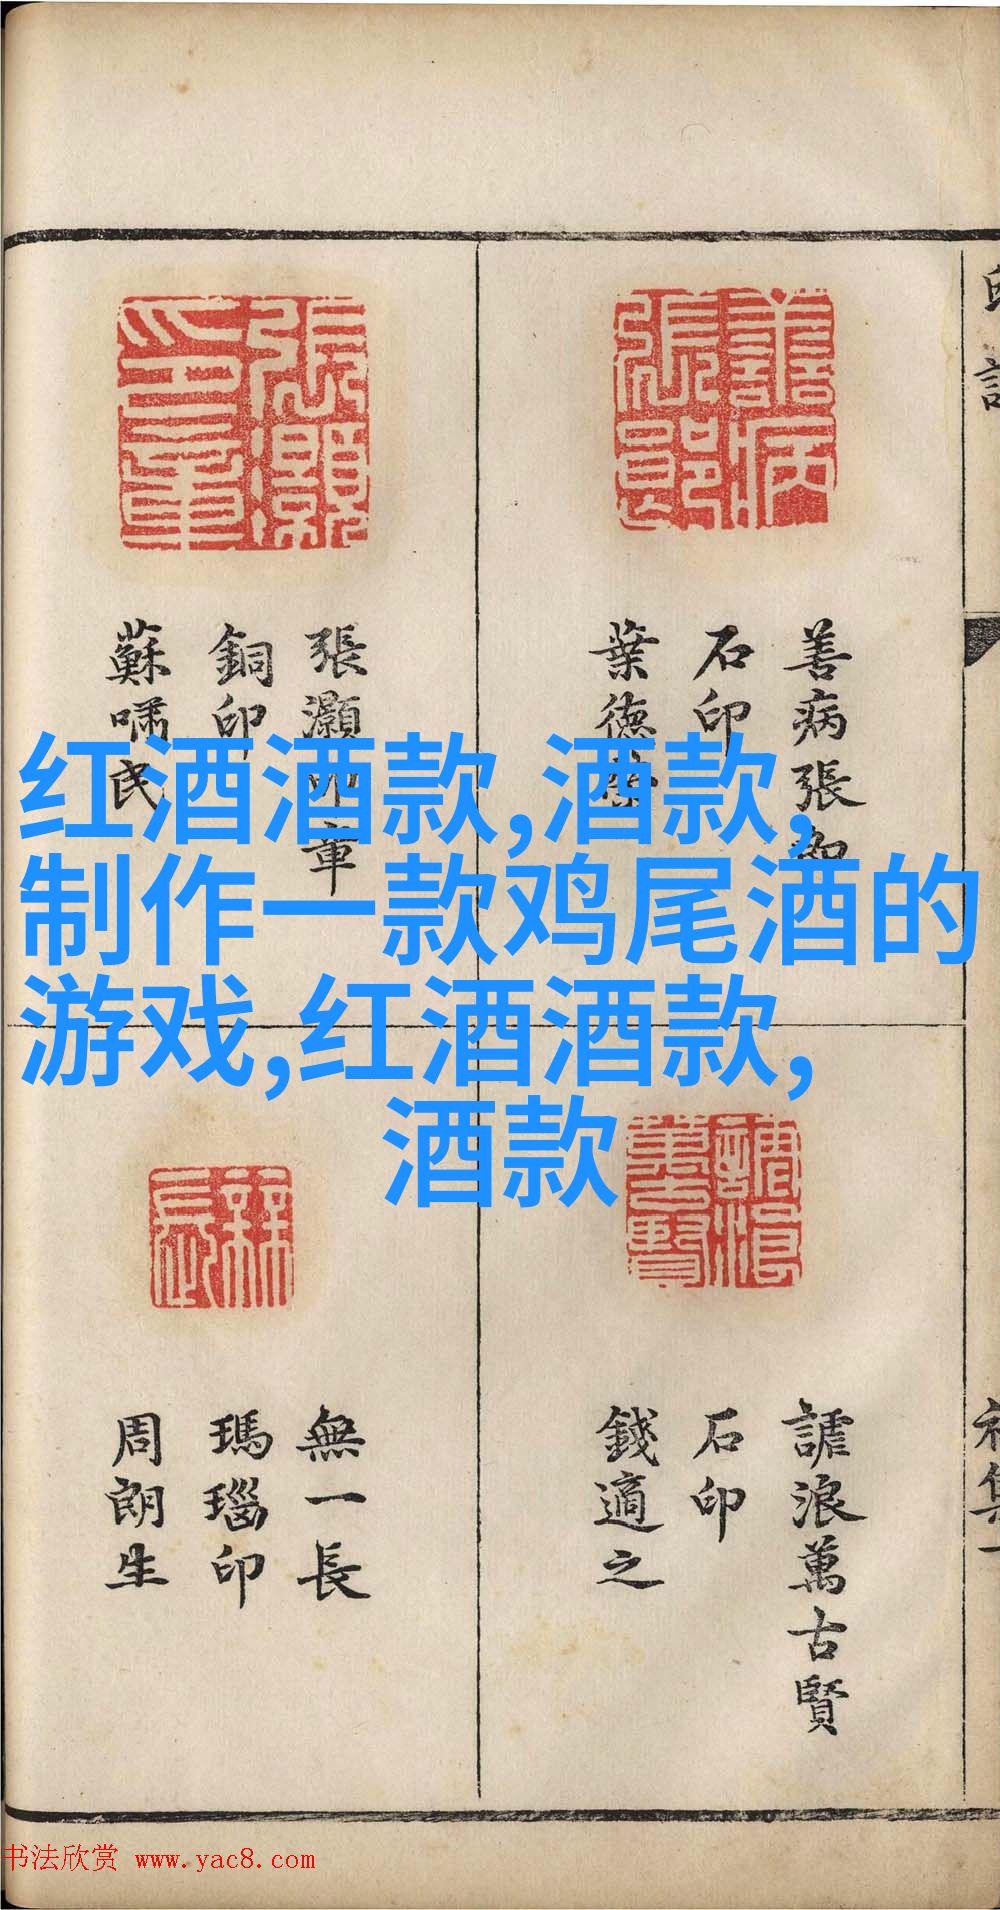 善病張郎
石印
葉德榮
張灝印章
銅印
蘇嘯民
红酒酒款,酒款,
制作一款鸡尾酒的
游戏,红酒酒款,
酒款
謔浪萬古賢
石印
錢適之
無一長
瑪瑙印
周朗生
初集一
书法欣赏 www.yac8.com